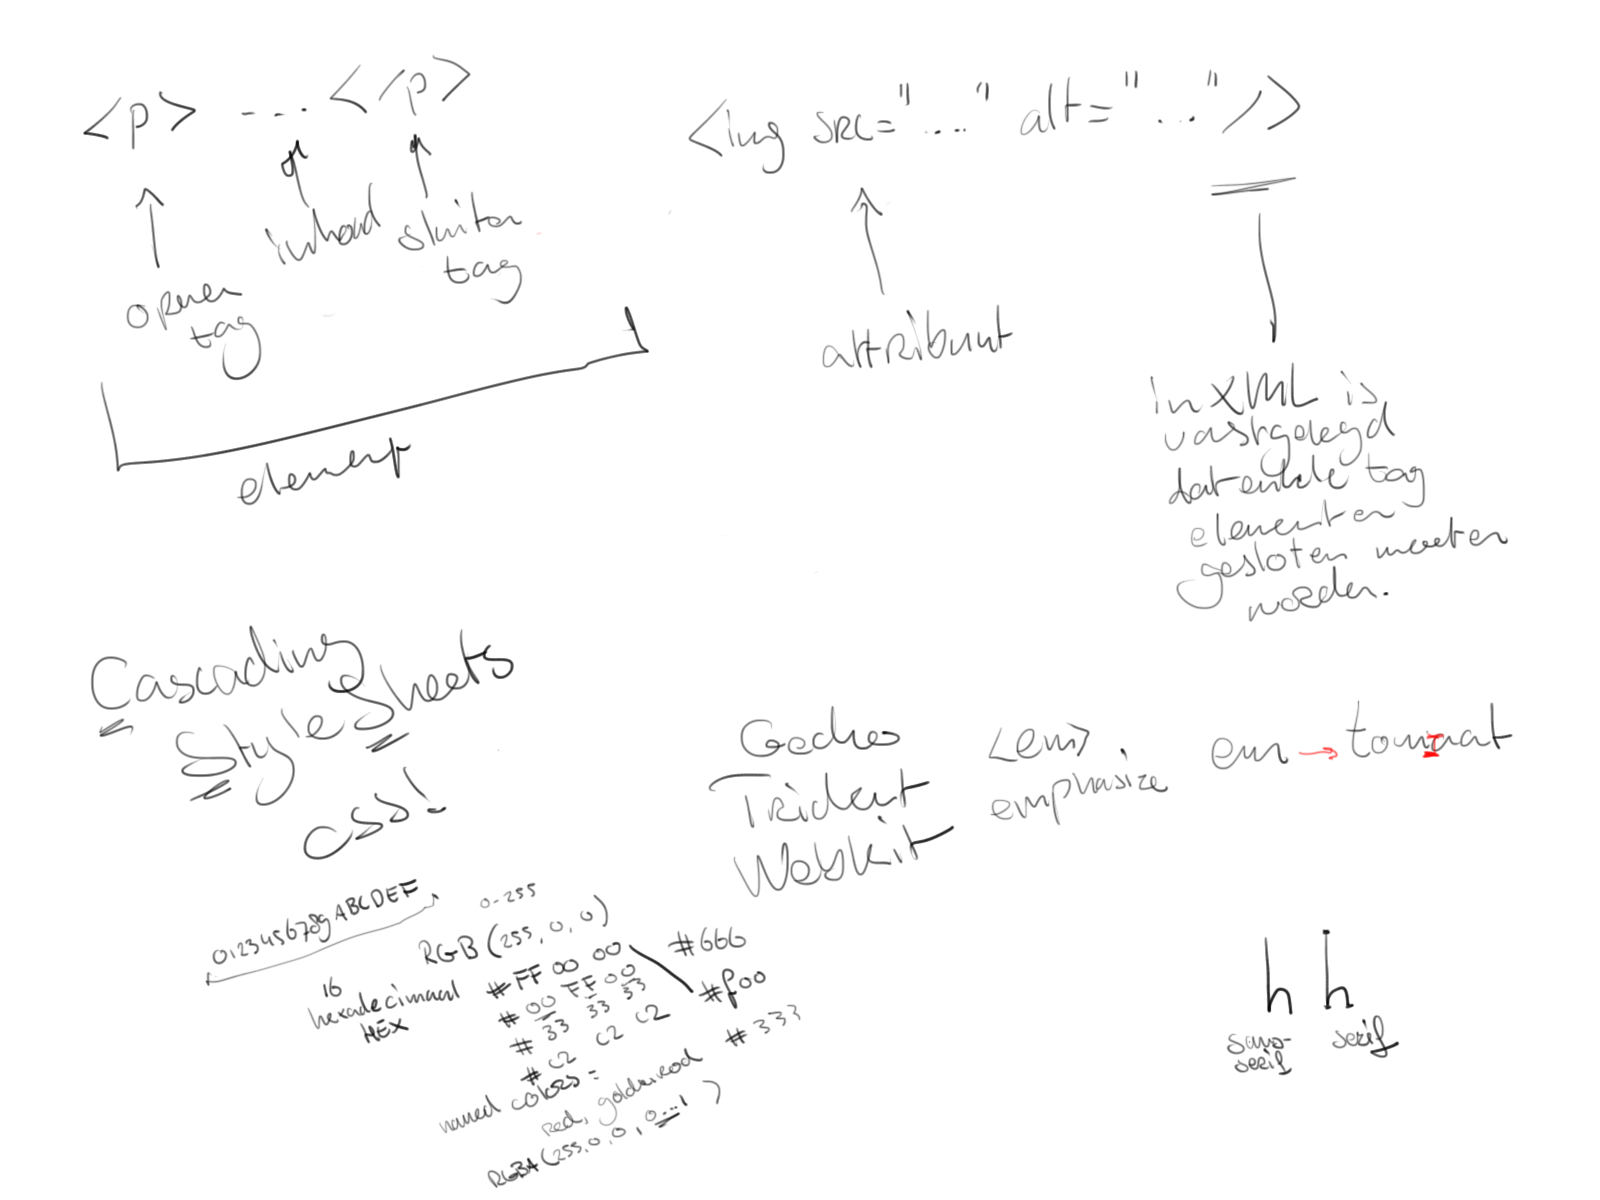 <p> .... </p>
opener
tag
inhoud
sluiter
tag
element
<img src="...." alt="..."/>
attribuut
in XML is
vastgelegd
dat enkele tag
elementen
gesloten moeten
worden.
Cascading
Style Sheets
CSS!
Gecko
Trident
Webkit
<em>
emphasize
em → tomaat
0123456789ABCDEF
16
hexadecimaal
HEX
0-255
RGB (255, 0, 0)
#FF 00 00
# 00 FF 00
# 33 33 33
# C2 C2 C2
#666
#f00
#333
named colors:
red, goldenrod
RGBA (255,0,0,0...1)
h h
sans-
serif
serif